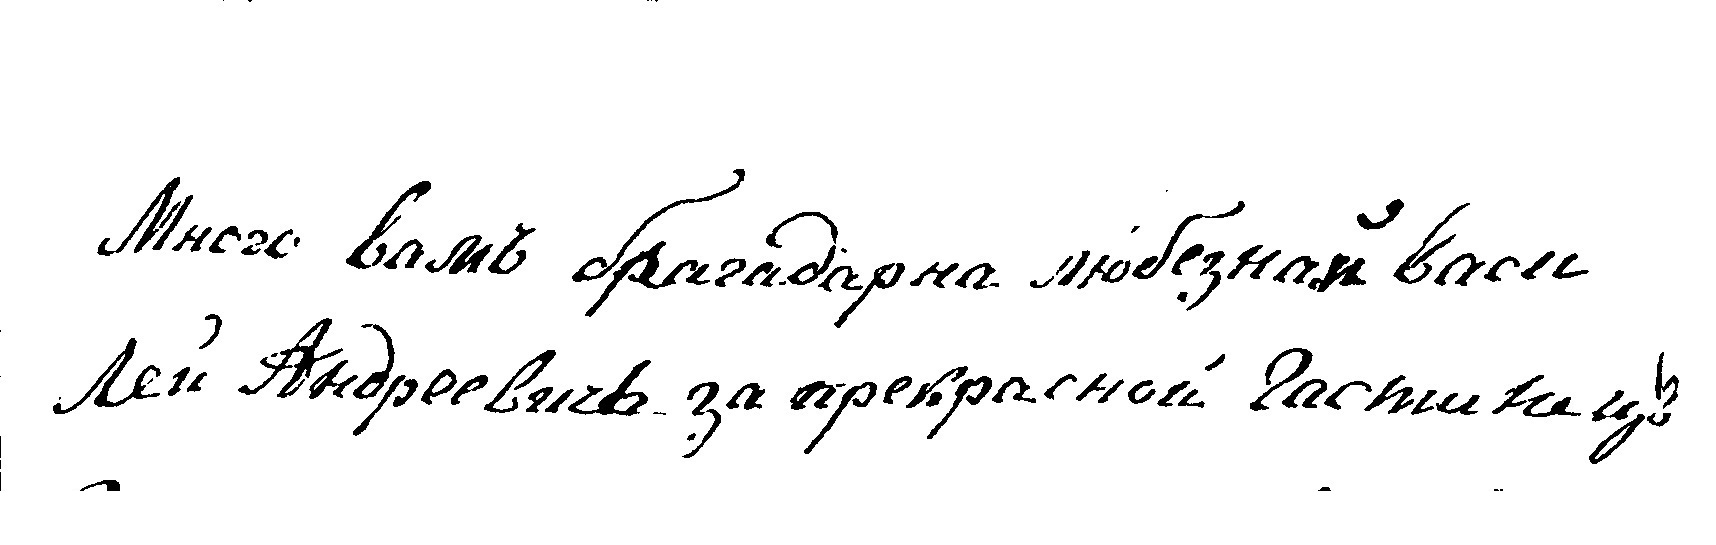 Много вамъ благадарна любезнай васи
лей Андреевичь за прекрасной Гастинецъ